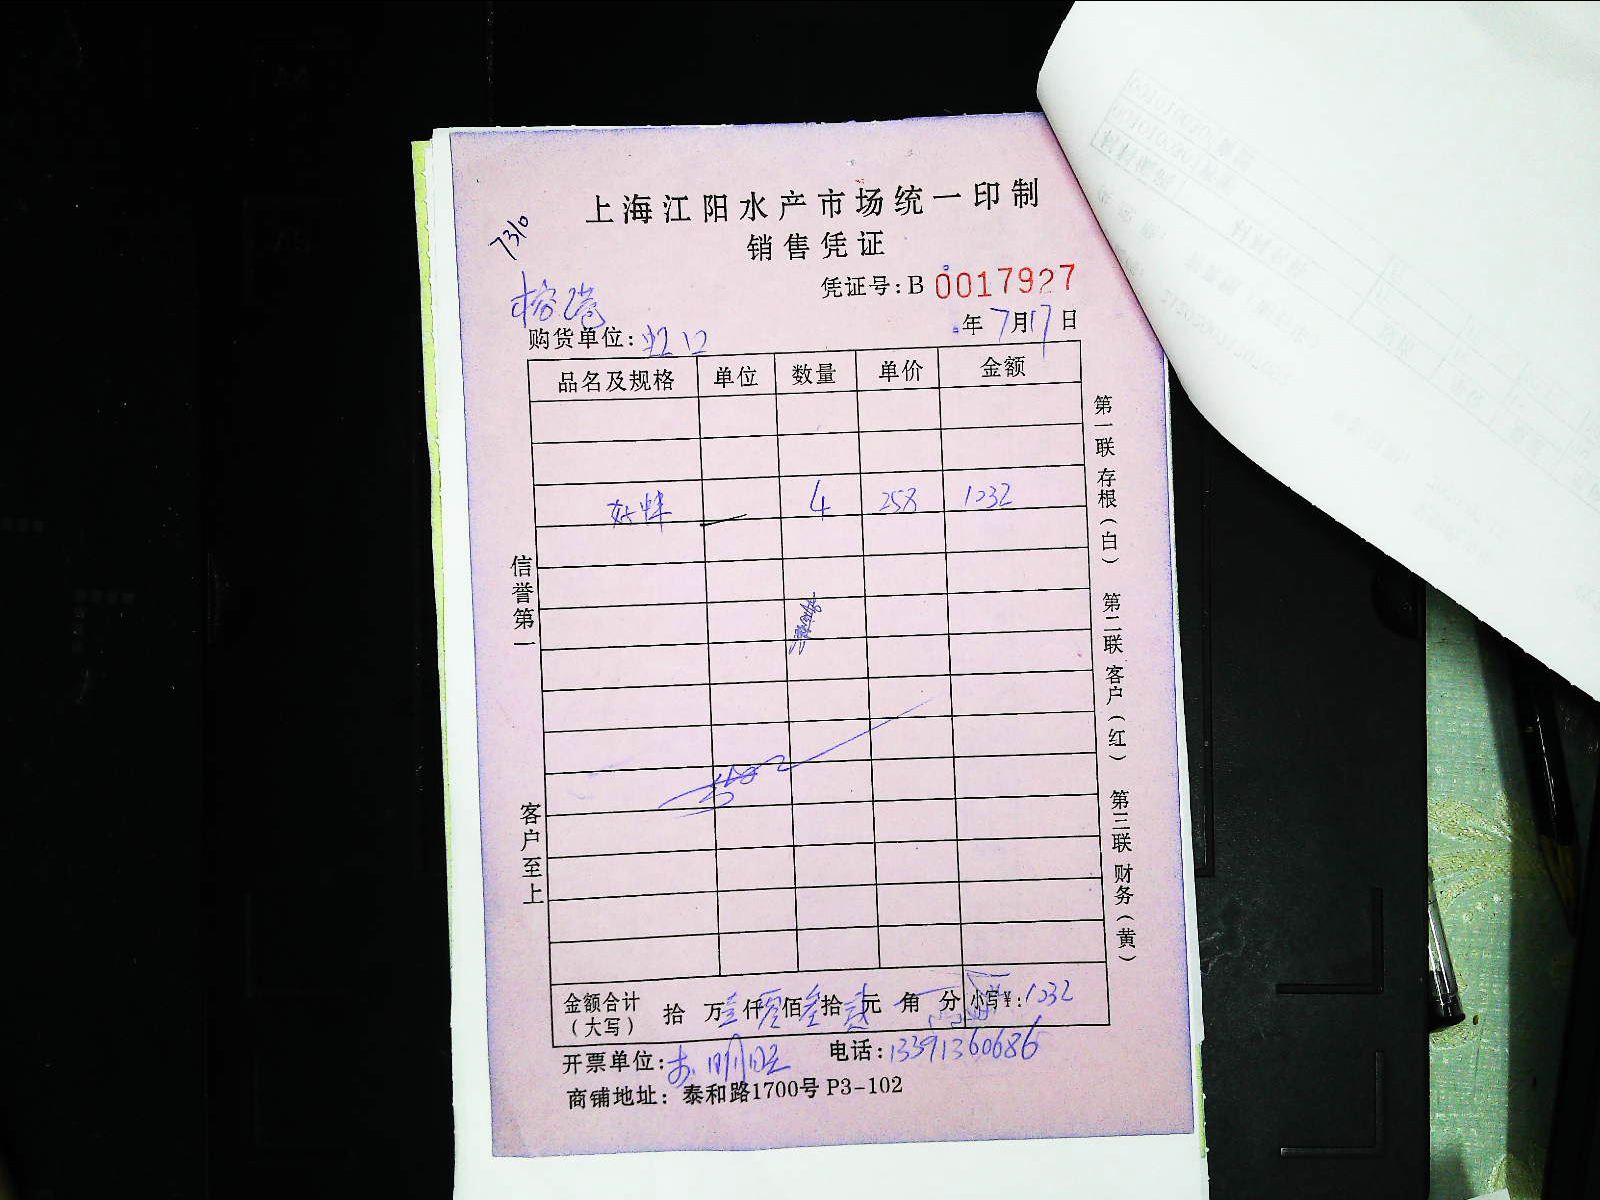 上海江阳水产市场统一印制
销售凭证
7310
凭证号：B 0017927
榕港
购货单位：虹口
年7月17日
品名及规格 单位 数量 单价 金额
4 258 1032
信誉第一
客户至上
第一联 存根（白） 第二联 客户（红） 第三联 财务（黄）
金额合计（大写） 拾 万壹仟零佰叁拾贰元 角 分 小写¥：1032
开票单位： 电话：13391360686
商铺地址：泰和路1700号 P3-102